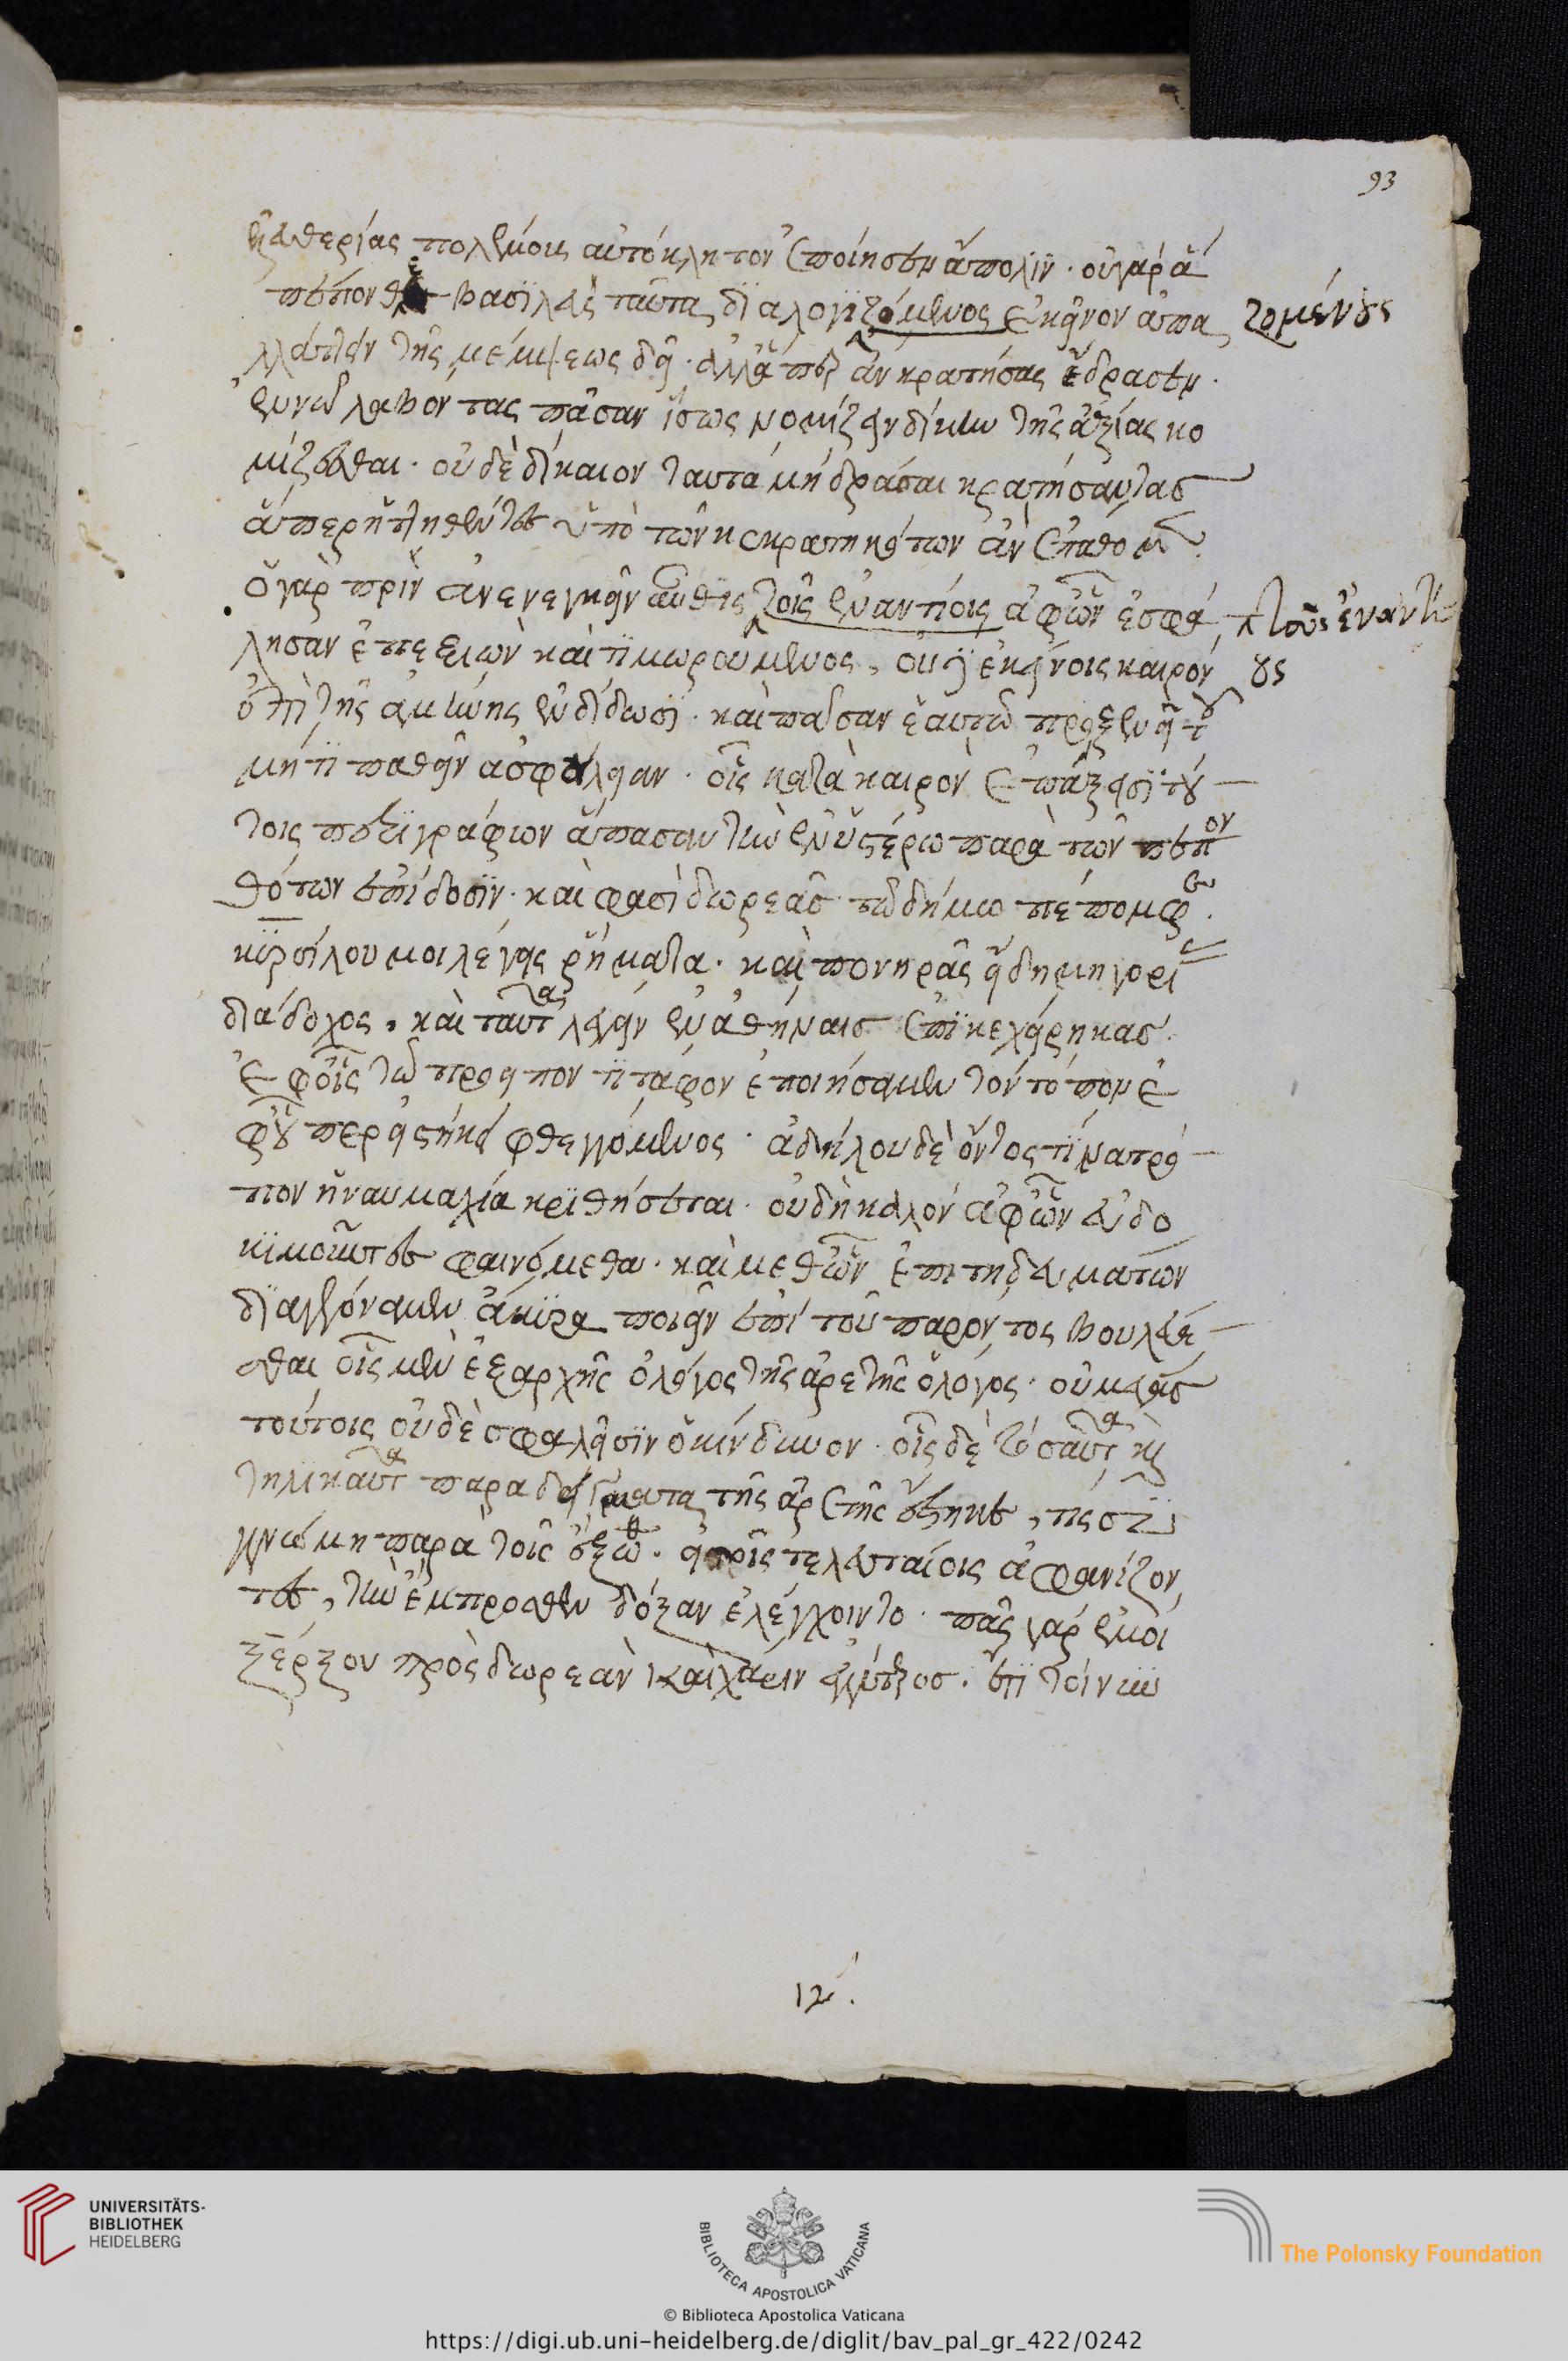 93
ἐλευθερίας πολεμίοις αὐτόκλητον ἐποίησεν ἄπολιν. οὐ γὰρ ἃ
πέπονθε βασιλεὺς ταῦτα διαλογιζόμενος ἐκεῖνον ἀπα
ζομένους
λλάττειν τῆς μέμψεως δεῖ. ἀλλ' ἅπερ ἂν κρατήσας ἔδρασεν.
ἐν νῷ λαβόντας πᾶσαν ἴσως νομίζειν δίκην τῆς ἀξίας κο
μίζεσθαι. οὐδὲ δίκαιον ταῦτα μὴ δρᾶσαι κρατήσαντας
ἅπερ ἡττηθέντες ὑπὸ τῶν κεκρατηκότων ἂν ἐπάθομεν.
ὁ γὰρ πρὶν ἀνενεγκεῖν αὖθις τοῖς ἐναντίοις ἀφ' ὧν ἐσφά
τοὺς ἐναντί
λησαν ἐπεξιὼν καὶ τιμωρούμενος, οὔτ' ἐκείνοις καιρὸν
ους
ἐπὶ τῆς ἀμύνης ἐνδίδωσι. καὶ πᾶσαν ἑαυτῷ προξενεῖ τοῦ
μή τι παθεῖν ἀσφάλειαν. οἷς κατὰ καιρὸν ἐπάξεισι τού
τοις περιγράφων ἅπασαν τὴν ἐν ὑστέρῳ παρὰ τῶν πεπον
θότων ἐπίδοσιν. καὶ φασὶ δωρεὰς τῷ δήμῳ πέπομφεν.
κυρσίλου μοι λέγεις ῥήματα. καὶ πονηρᾶς εἶ δημηγορίας
διάδοχος, καὶ ταῦτα λέγειν ἐν ἀθήναις ἐπικεχείρηκας.
ἐφ' οἷς τῷ προειπόντι τάφον ἐποιήσαμεν τὸν τόπον ἐ
φ' οὗ περ εἱστήκει φθεγγόμενος. ἀδήλου δὲ ὄντος τίνα τρό
πον ἡ ναυμαχία κριθήσεται. οὐ δὴ καλὸν ἀφ' ὧν εὐδο
κιμοῦντες φαινόμεθα. καὶ μεθ' ὧν ἐπιτηδευμάτων
διαγεγόναμεν ἄκυρα ποιεῖν ἐπὶ τοῦ παρόντος βουλεύε
σθαι οἷς μὲν ἐξαρχῆς ὀλίγος τῆς ἀρετῆς ὁ λόγος. οὐ μέγας
τούτοις οὐδὲ σφαλεῖσιν ὁ κίνδυνος. οἷς δὲ τοσαῦτα καὶ
τηλικαῦτα παραδείγματα τῆς ἀρετῆς ἕστηκε, τίς ἔτι
γνώμη παρὰ τοῖς ἔξωθεν. εἰ τοῖς τελευταίοις ἀφανίζον
τες, τὴν ἔμπροσθεν δόξαν ἐλέγχοιντο. πᾶς γὰρ ἐμοὶ
ξέρξου πρὸς δωρεὰν καὶ χάριν εὐμενὴς. ἔτι τοίνυν
12.
UNIVERSITÄTS-
BIBLIOTHEK
HEIDELBERG
BIBLIOTECA APOSTOLICA VATICANA
The Polonsky Foundation
© Biblioteca Apostolica Vaticana
https://digi.ub.uni-heidelberg.de/diglit/bav_pal_gr_422/0242